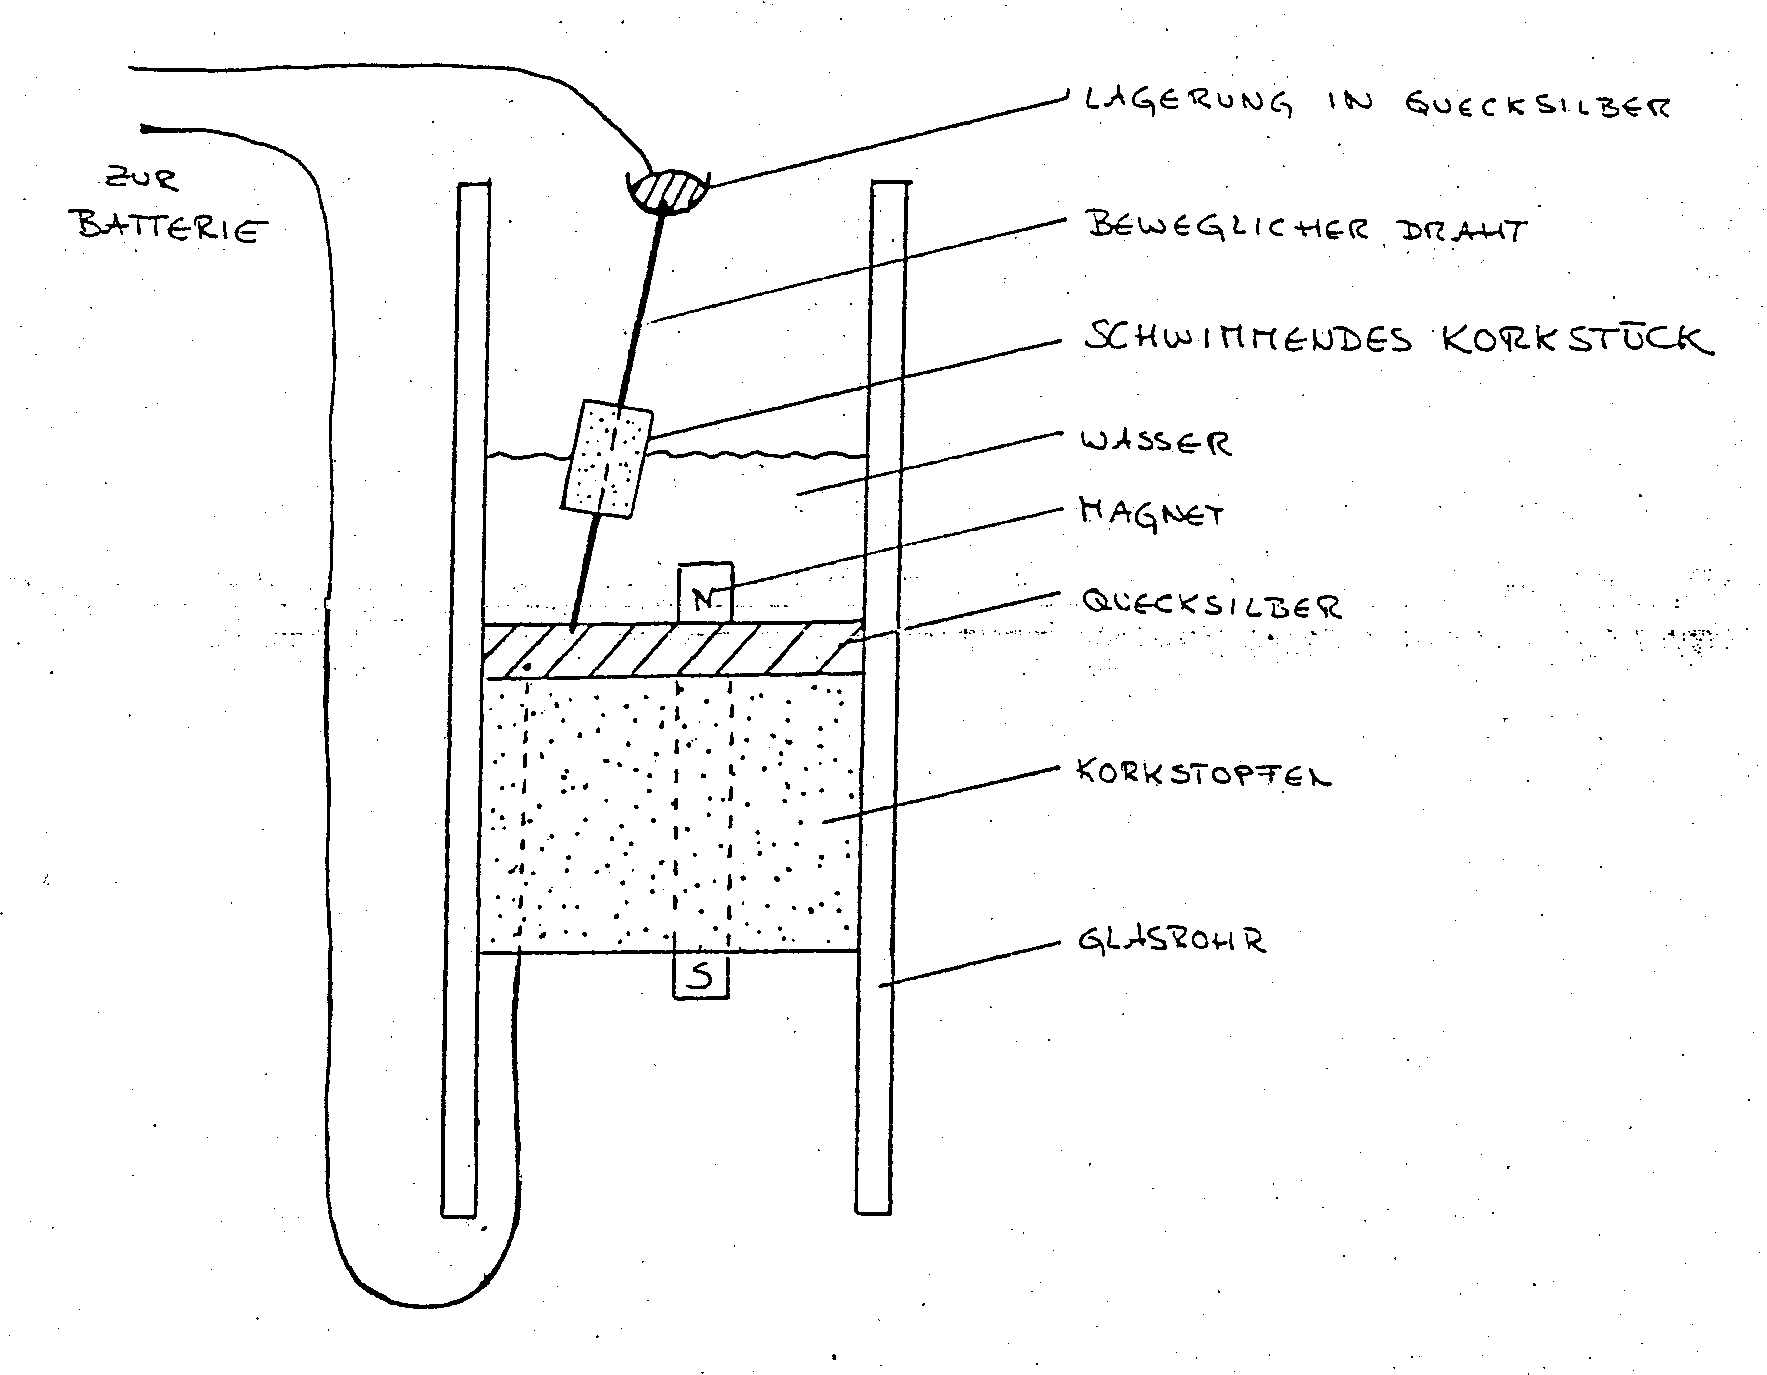 LAGERUNG IN QUECKSILBER
ZUR
BATTERIE
BEWEGLICHER DRAHT
SCHWIMMENDES KORKSTÜCK
WASSER
MAGNET
N
QUECKSILBER
KORKSTOPFEN
GLASROHR
S